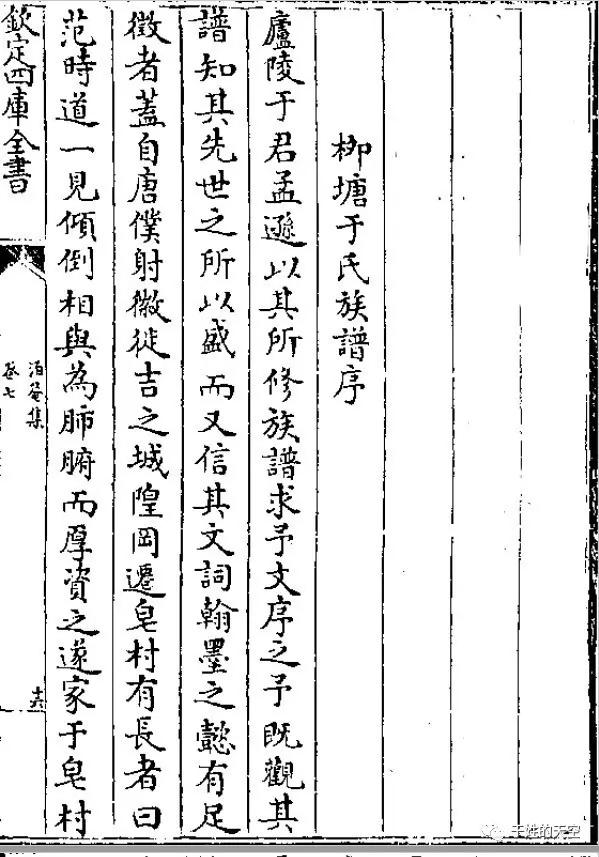 栁塘于氏族譜序
廬陵于君孟遜以其所修族譜求予文序之予既觀其
譜知其先世之所以盛而又信其文詞翰墨之懿有足
徵者蓋自唐僕射徽徙吉之城隍岡遷皂村有長者曰
范時道一見傾倒相與為肺腑而厚資之遂家于皂村
欽定四庫全書
泊菴集
卷七
十六
于姓的天空